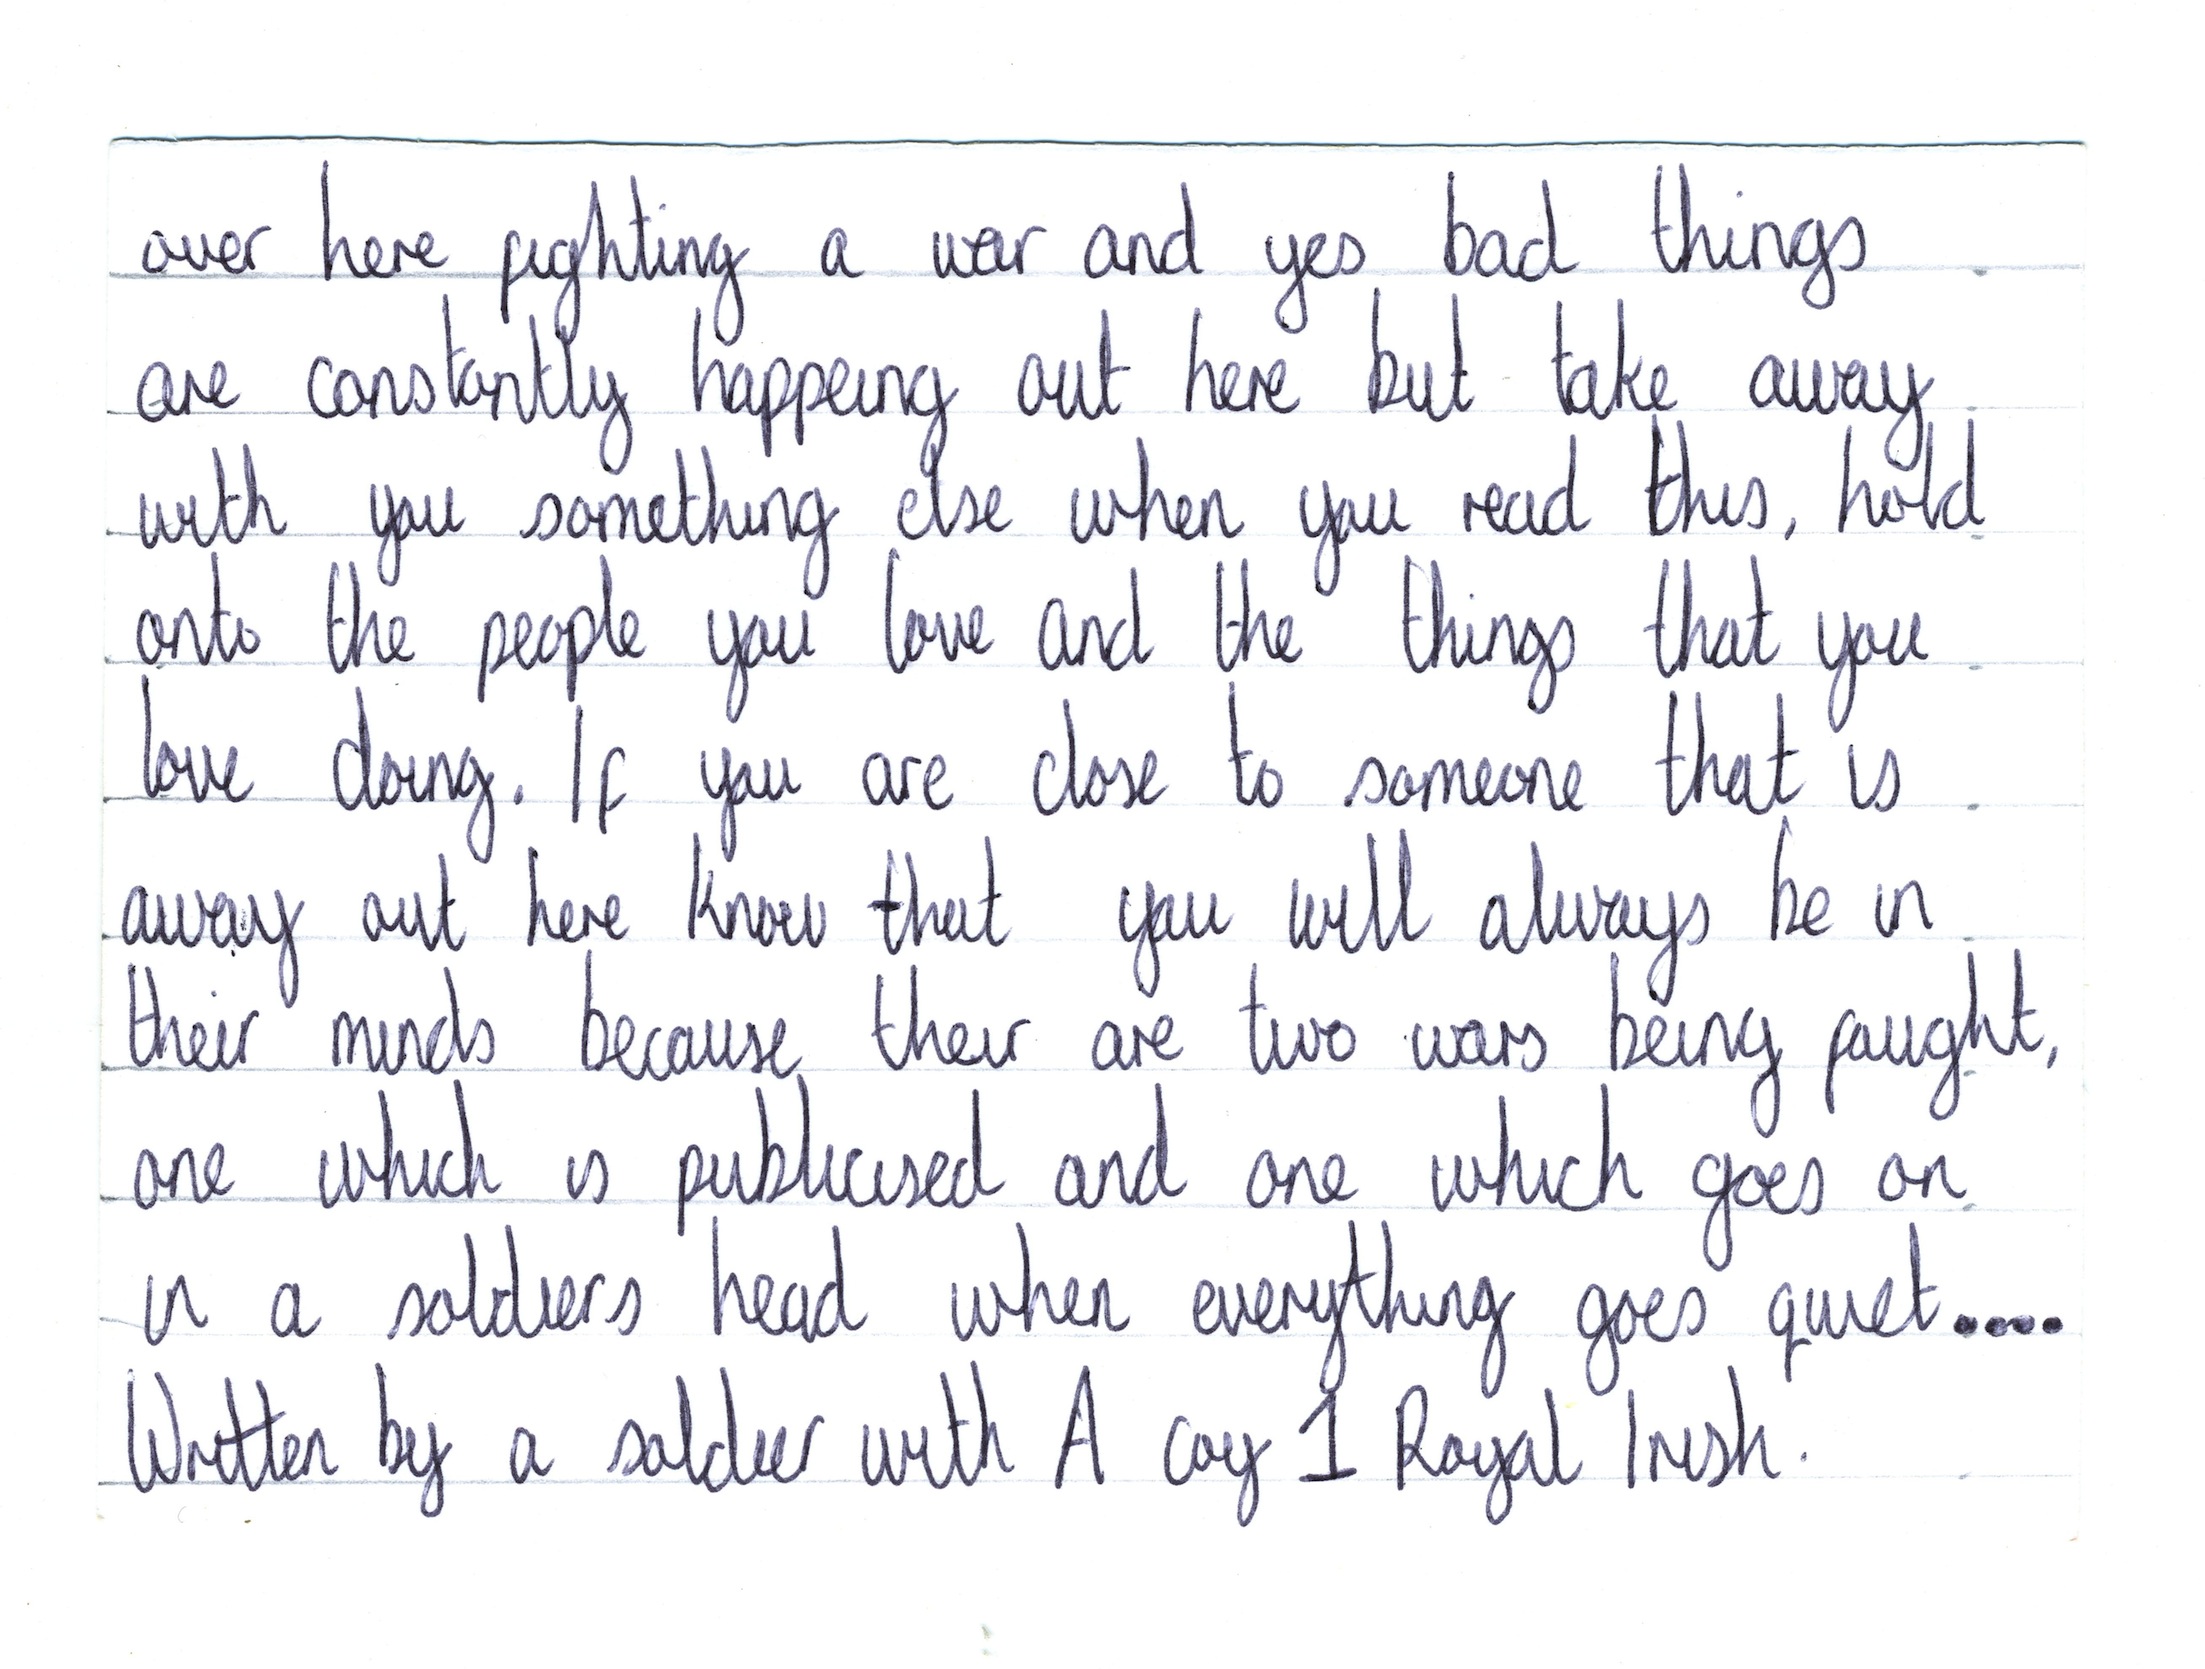 over here fighting a war and yes bad things
are constantly happeing out here but take away
with you something else when you read this, hold
onto the people you love and the things that you
love doing. If you are close to someone that is
away out here know that you will always be in
their minds because their are two wars being faught,
one which is publicised and one which goes on
in a soldiers head when everything goes quiet....
Written by a soldier with A coy 1 Royal Irish.